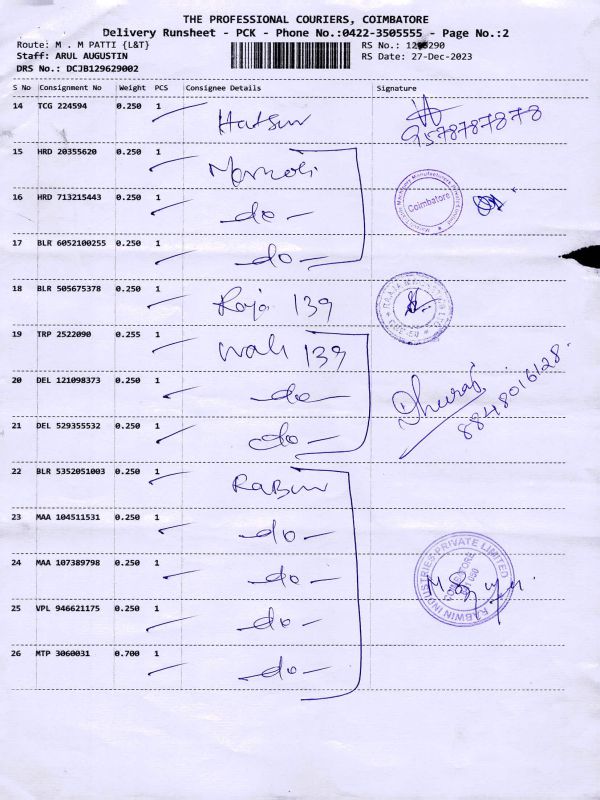 THE PROFESSIONAL COURIERS, COIMBATORE
Delivery Runsheet - PCK - Phone No.:0422-3505555 - Page No.:2
Route: M . M PATTI {L&T}
RS No.:
Staff: ARUL AUGUSTIN
RS Date: 27-Dec-2023
DRS No.: DCJB129629002
S No Consignment No Weight PCS Consignee Details Signature
14 TCG 224594 0.250 1 Hatsun
9578787878
15 HRD 20355620 0.250 1
16 HRD 713215443 0.250 1 - do -
Coimbatore
17 BLR 6052100255 0.250 1 - do -
18 BLR 505675378 0.250 1 Raja 139
19 TRP 2522090 0.255 1 Wali 139
20 DEL 121098373 0.250 1 - do -
Dhuraj
8848016128
21 DEL 529355532 0.250 1 - do -
22 BLR 5352051003 0.250 1 Rabwin
23 MAA 104511531 0.250 1 - do -
24 MAA 107389798 0.250 1 - do -
RABWIN INDUSTRIES PRIVATE LIMITED
25 VPL 946621175 0.250 1 - do -
26 MTP 3060031 0.700 1 - do -